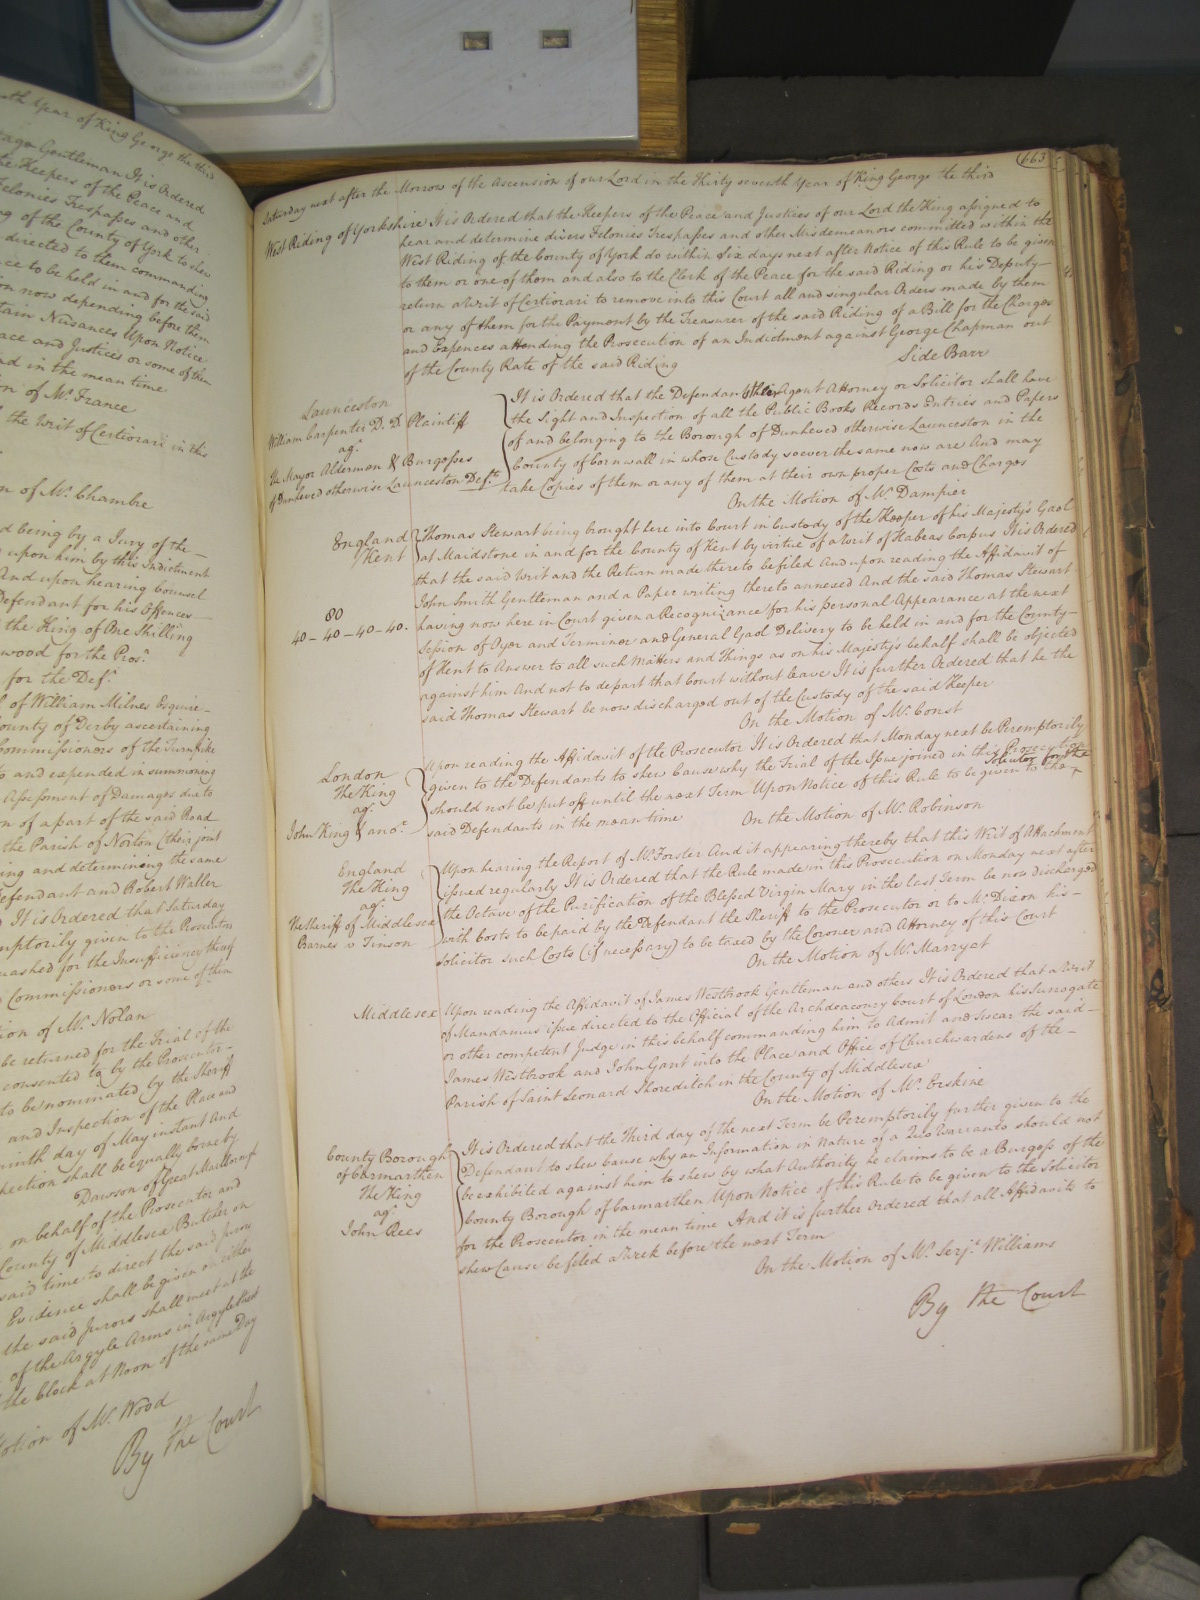 uth Year of King George the third
Gentleman It is Ordered
the Keepers of the Peace and
Felonies Trespasses and other
ng of the County of York to shew
directed to them commanding
ce to be held in and for the said
on now depending before them
tain Nusances Upon Notice
ace and Justices or some of them
nd in the mean time
on of Mr. France
the Writ of Certiorari in this
n of Mr. Chambre
d being by a Jury of the
upon him by this Indictment
And upon hearing Counsel
Defendant for his Offences
the King of One Shilling
wood for the Pros.r
for the Def.t
of William Milnes Esquire
County of Derby ascertaining
Commissioners of the Turnpike
and expended in summoning
Assessment of Damages due to
n of a part of the said Road
the Parish of Norton (their joint
ing and determining the same
Defendant and Robert Waller
It is Ordered that Saturday
mptorily given to the Prosecutors
uashed for the Insufficiency thereof
Commissioners or some of them
tion of Mr. Nolan
be returned for the Trial of the
consented to by the Prosecutor
to be nominated by the Sheriff
and Inspection of the Place and
ninth day of May instant And
pection shall be equally borne by
Dawson of Great Marlborough
on behalf of the Prosecutor and
County of Middlesex Butcher on
said time to direct the said Jurors
Evidence shall be given on either
the said Jurors shall meet at the
of the Argyle Arms in Argyle Street
the Clock at Noon of the same Day
Motion of Mr. Wood
By the Court
663
Saturday next after the Morrow of the Ascension of our Lord in the Thirty seventh Year of King George the third
West Riding of Yorkshire It is Ordered that the Keepers of the Peace and Justices of our Lord the King assigned to
hear and determine divers Felonies Trespasses and other Misdemeanors committed within the
West Riding of the County of York do within Six days next after Notice of this Rule to be given
to them or one of them and also to the Clerk of the Peace for the said Riding or his Deputy
return a Writ of Certiorari to remove into this Court all and singular Orders made by them
or any of them for the Payment by the Treasurer of the said Riding of a Bill for the Charges
and Expences attending the Prosecution of an Indictment against George Chapman out
of the County Rate of the said Riding
Side Barr
Launceston
William Carpenter D. D. Plaintiff
ag.t
The Mayor Alderman & Burgesses
of Dunheved otherwise Launceston Def.ts
It is Ordered that the Defendants their Agent Attorney or Solicitor shall have
the Sight and Inspection of all the Public Books Records Entries and Papers
of and belonging to the Borough of Dunheved otherwise Launceston in the
County of Cornwall in whose Custody soever the same now are And may
take Copies of them or any of them at their own proper Costs and Charges
On the Motion of Mr. Dampier
England
Kent
80
40 - 40 - 40 - 40.
Thomas Stewart being brought here into Court in Custody of the Keeper of his Majesty's Gaol
at Maidstone in and for the County of Kent by virtue of a Writ of Habeas Corpus It is Ordered
that the said Writ and the Return made thereto be filed And upon reading the Affidavit of
John Smith Gentleman and a Paper writing thereto annexed And the said Thomas Stewart
having now here in Court given a Recognizance for his personal Appearance at the next
Session of Oyer and Terminer and General Gaol Delivery to be held in and for the County
of Kent to Answer to all such Matters and Things as on his Majesty's behalf shall be objected
against him And not to depart that Court without leave It is further Ordered that he the
said Thomas Stewart be now discharged out of the Custody of the said Keeper
On the Motion of Mr. Const
London
The King
ag.t
John King & ano.r
Upon reading the Affidavit of the Prosecutor It is Ordered that Monday next be Peremptorily
given to the Defendants to shew Cause why the Trial of the Issue joined in this Prosecution
should not be put off until the next Term Upon Notice of this Rule to be given to the Solicitor for the
said Defendants in the mean time
On the Motion of Mr. Robinson
England
The King
ag.t
The Sheriff of Middlesex
Barnes v Timson
Upon hearing the Report of Mr. Forster And it appearing thereby that this Writ of Attachment
issued regularly It is Ordered that the Rule made in this Prosecution on Monday next after
the Octave of the Purification of the Blessed Virgin Mary in the last Term be now discharged
with Costs to be paid by the Defendant the Sheriff to the Prosecutor or to Mr. Dixon his
Solicitor such Costs (if necessary) to be taxed by the Coroner and Attorney of this Court
On the Motion of Mr. Marryat
Middlesex
Upon reading the Affidavit of James Westbrook Gentleman and others It is Ordered that a Writ
of Mandamus issue directed to the Official of the Archdeaconry Court of London his Surrogate
or other competent Judge in this behalf commanding him to Admit and Swear the said
James Westbrook and John Gant into the Place and Office of Churchwardens of the
Parish of Saint Leonard Shoreditch in the County of Middlesex
On the Motion of Mr. Erskine
County Borough
of Carmarthen
The King
ag.t
John Rees
It is Ordered that the Third day of the next Term be Peremptorily further given to the
Defendant to shew Cause why an Information in Nature of a Quo Warranto should not
be exhibited against him to shew by what Authority he claims to be a Burgess of the
County Borough of Carmarthen Upon Notice of this Rule to be given to the Solicitor
for the Prosecutor in the mean time And it is further Ordered that all Affidavits to
shew Cause be filed a Week before the next Term
On the Motion of Mr. Serj.t Williams
By the Court